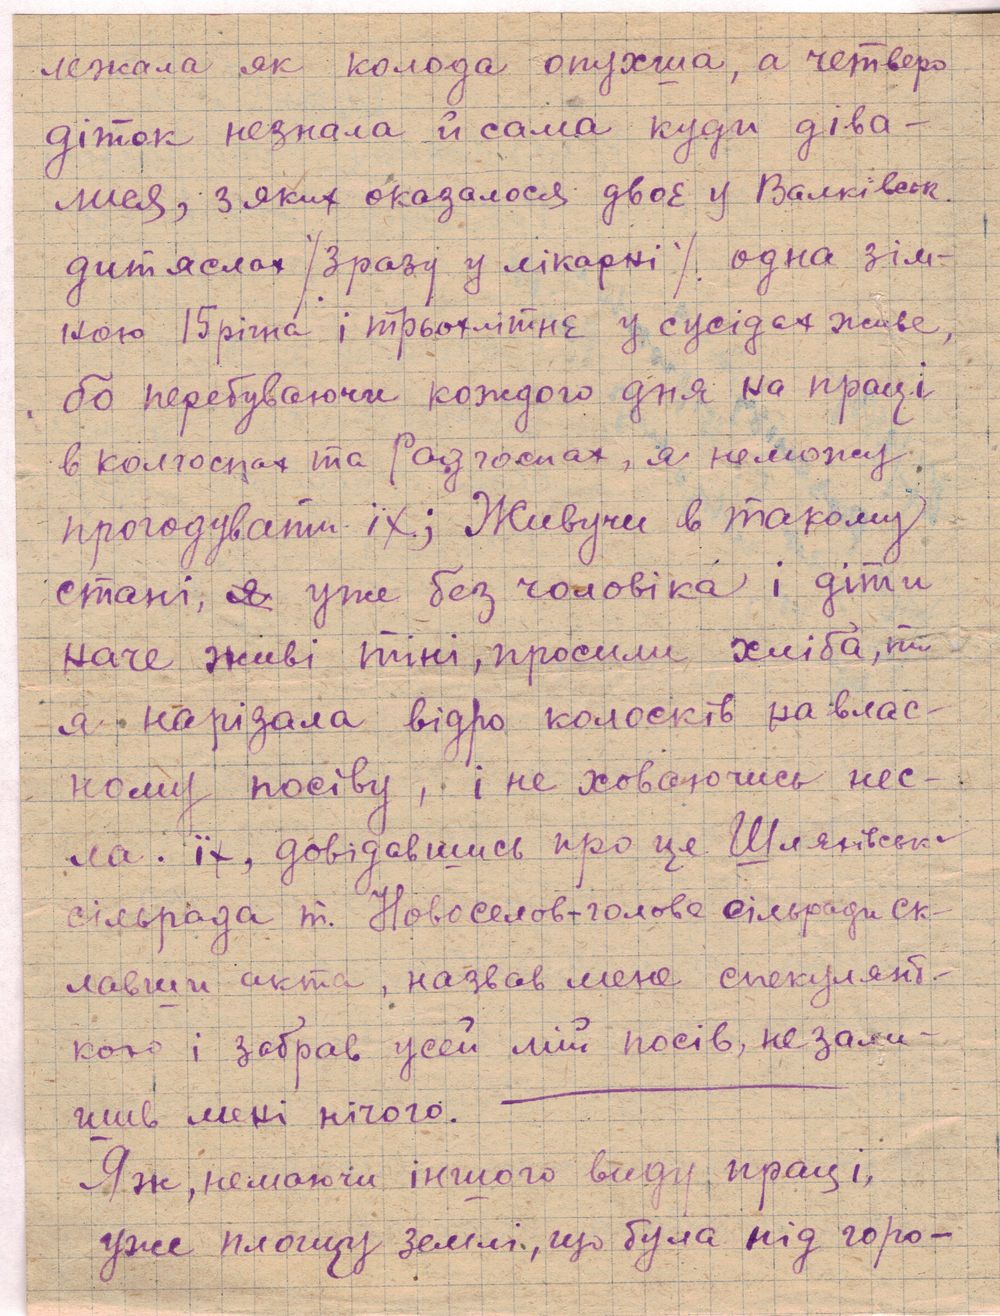 лежала як колода опухша, а четверо
діток незнала й сама куди діва-
лися, з яких оказалося двоє у Валківськ.
дитяслах /зразу у лікарні/. одна зім-
ною 15 річна і трьохлітнє у сусідах живе,
бо перебуваючи кождого дня на праці
в колгоспах та Радгоспах, я неможу
прогодувати їх; Живучи в такому
стані, я уже без чоловіка і діти
наче живі тіні, просили хліба, то
я нарізала відро колосків на влас-
ному посіву, і не ховаючись нес-
ла. їх, довідавшись про це Шляхівськ
сільрада т. Новоселов + голова сільради ск-
лавши акта, назвав мене спекулянт-
кою і забрав усей мій посів, незали-
шив мені нічого.
Я ж, немаючи іншого виду праці,
уже площу землі, що була під горо-